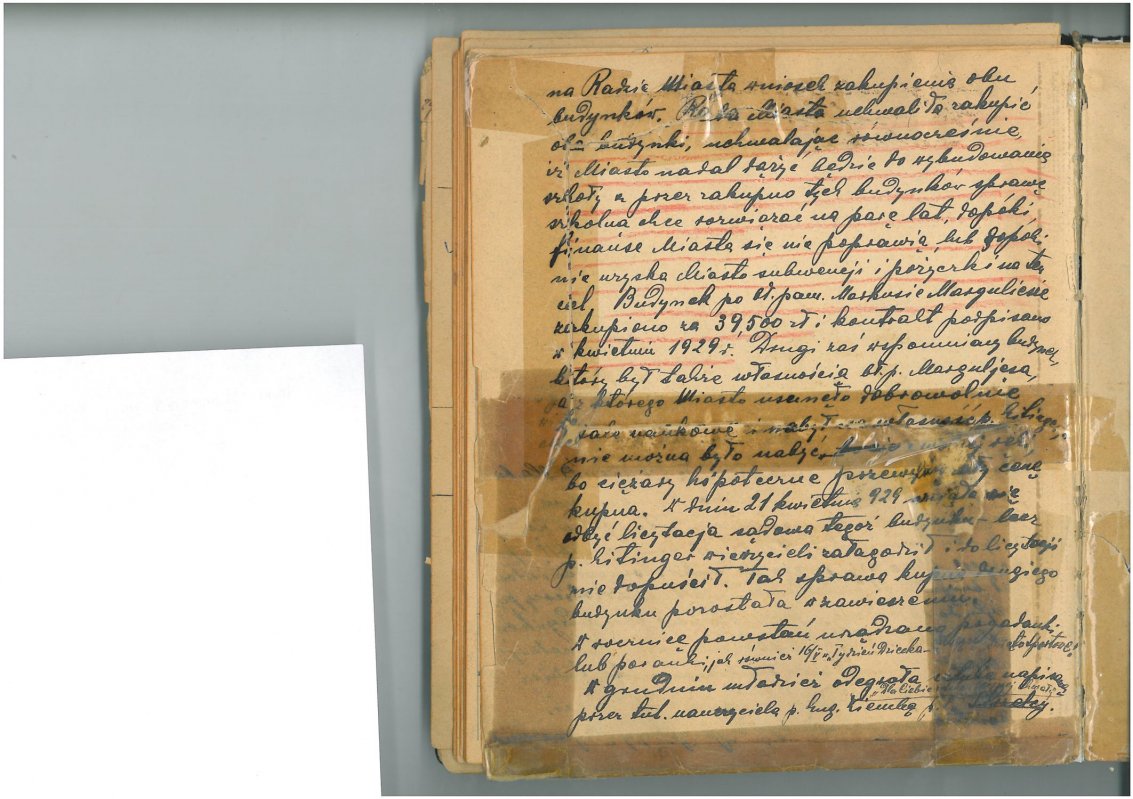 na Radzie Miasta wniosek zakupienia obu
budynków. Rada Miasta uchwaliła zakupić
oba budynki, uchwalając równocześnie,
iż Miasto nadal dążyć będzie do wybudowania
szkoły a przez zakupno tych budynków sprawę
szkolną chce rozwiązać na parę lat, dopóki
finanse Miasta się nie poprawią lub dopóki
nie uzyska Miasto subwencji i pożyczki na ten
cel. Budynek po śt. pam. Markusie Marguliesie
zakupiono za 39,500 zł i kontrakt podpisano
w kwietniu 1929 r. Drugi zaś wspomniany budynek,
który był także własnością śt. p. Marguljesa,
a z którego Miasto usunęło dobrowolnie
sale naukowe i nabył na własność p. Eitinger,
nie można było nabyć,
bo ciężary hipoteczne przewyższały cenę
kupna. W dniu 21 kwietnia 929 miała się
odbyć licytacja sądowa tegoż budynku – lecz
p. Eitinger wierzycieli załagodził i do licytacji
nie dopuścił. Tak sprawa kupna drugiego
budynku pozostała w zawieszeniu.
W rocznicę powstań urządzano pogadanki
lub poranki, jak również 16/V "Tydzień Dziecka"
W grudniu młodzież odegrała sztukę napisaną
"Dla Ciebie
przez tut. nauczyciela p. Eug. Ziembę p.